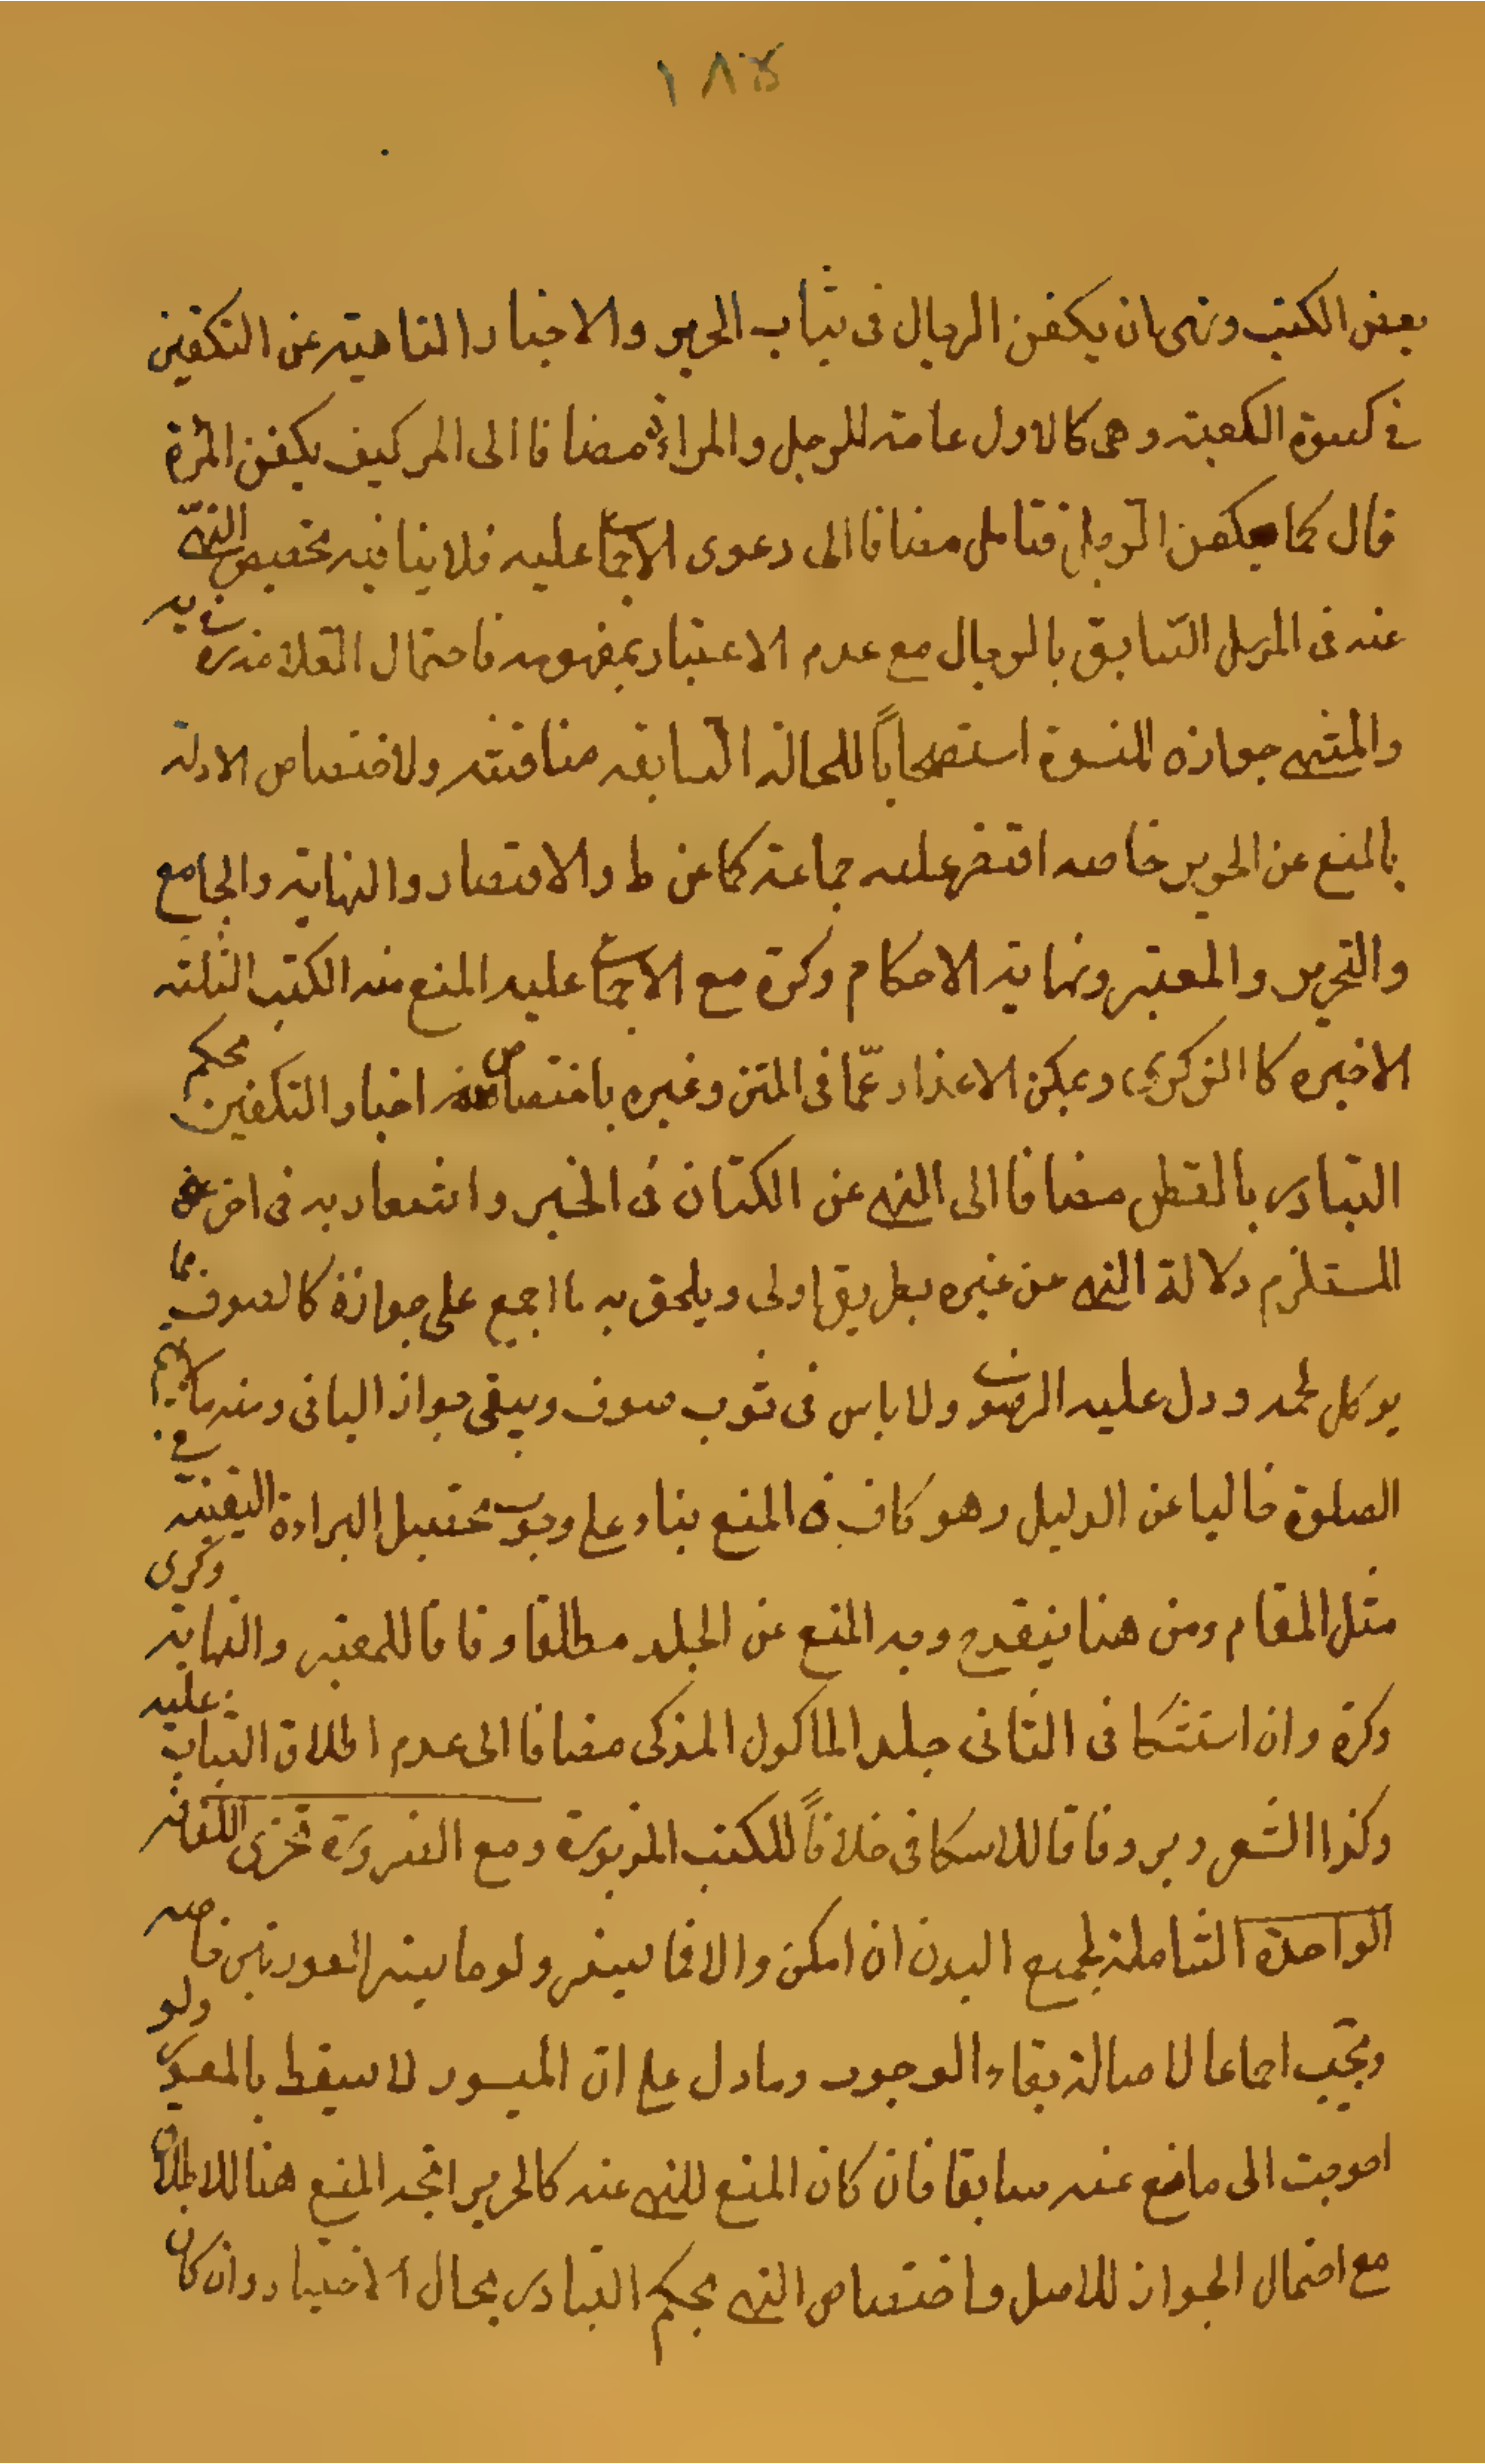 ١٨٥
بعض الكتب ونهى ان يكفن الرجال في ثياب الحرير والاخبار الناهية عن التكفين
في كسوة الكعبة وهي كالاول عامة للرجل والمراة مضافا الى المر كيف يكفن المرة
قال كما يكفن الرجل فتامل مضافا الى دعوى الاجماع عليه فلا ينافيه تخصيص النهي
عنه في المرسل السابق بالرجال مع عدم الاعتبار بمفهومه فاحتمال العلامة في
والمنتهى جوازه للنسوة استصحاباً للحالة السابقه مناقشته ولاختصاص الادلة
بالمنع عن الحرير خاصه اقتصر عليه جماعة كما عن ط والاقتصار والنهاية والجامع
والتحرير والمعتبر ونهاية الاحكام وكرة مع الاجماع عليه المنع منه الكتب الثلثة
الاخيره كالذكرى ويمكن الاعتذار عمّا في المتن وغيره باختصاص اخبار التكفين بحكم
التبادر بالقطن مضافا الى النهي عن الكتان في الخبر واشعار به في اخر
المستلزم دلالة النهي عن غيره بطريق اولى ويلحق به ما اجمع على جوازه كالصوف مما
يوكل لحمه ودل عليه الرضوي ولا باس في ثوب صوف ويبقى جواز الباقي ومنه ما لا يتم فيه
الصلوة خاليا عن الدليل وهو كاف في المنع بناء على وجوب تحصيل البراءة اليقينية في
مثل المقام ومن هنا ينقدح وجه المنع عن الجلد مطلقا وفاقا للمعتبر والنهاية وكرى
وكرة وان استشكا في الثاني جلد الماكول المذكى مضافا الى عدم اطلاق الثياب عليه
وكذا الشعر وبر وفاقا للاسكافي خلافاً للكتب المزبورة ومع الضرورة تجزى اللفافة
الواحدة الشاملة لجميع البدن ان امكن والا فما تيسر ولو ما يستر العورتين خاصه
ويجب اجماعا لاصالة بقاء الوجوب وما دل على ان الميسور لا يسقط بالمعسور ولو
احوجت الى ما منع عنه سابقا فان كان المنع للنهي عنه كالحرير اتجه المنع هنا للاطلاق
مع احتمال الجواز للاصل واختصاص النهي بحكم التبادر بحال الاختيار وان كان